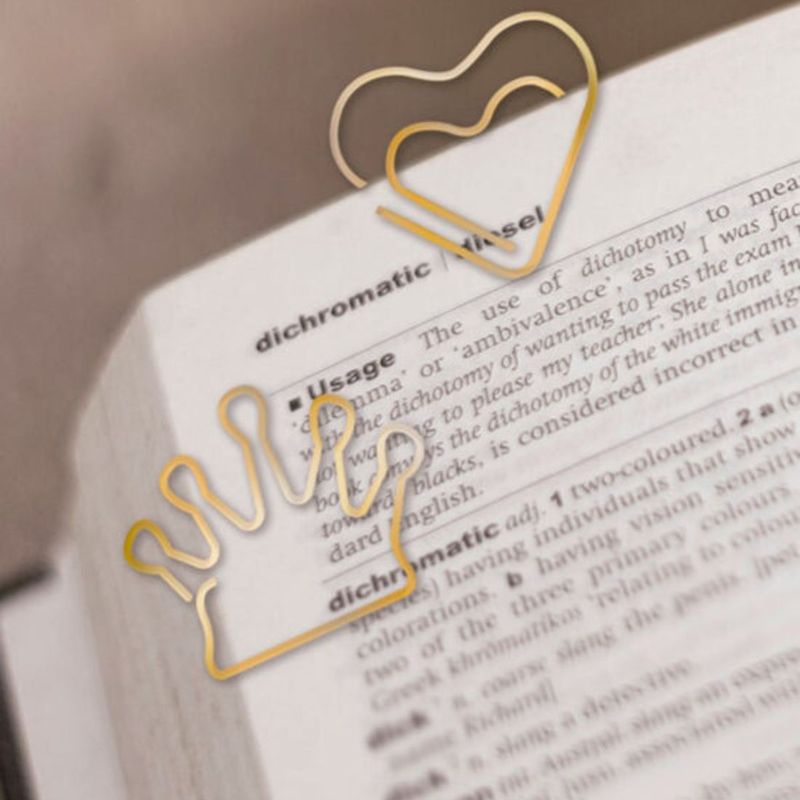 dichromatic | diesel
■ Usage The use of dichotomy to mea
'dilemma' or 'ambivalence', as in I was fac
with the dichotomy of wanting to pass the exam
to please my teacher; She alone in
the dichotomy of the white immigr
blacks, is considered incorrect in
dard English.
dichromatic adj. 1 two-coloured. 2 a (o
species) having individuals that show
colorations. b having vision sensitiv
two of the three primary colours.
Greek khrōmatikos 'relating to colou
n. coarse slang the penis. [pet
Richard]
n. slang a detective.